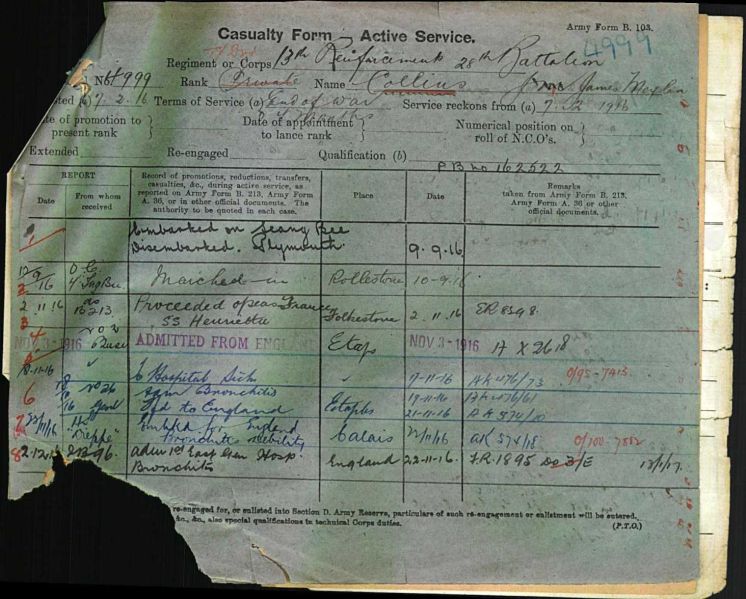 Casualty Form — Active Service.
Army Form B. 103.
4999
Regiment or Corps 13th Reinforcements 28th Battalion
No 4999 Rank Private Name Collins James
7.2.16 Terms of Service (a) End of war Service reckons from (a) 7. 2. 1916
te of promotion to present rank } Date of appointment to lance rank } Numerical position on roll of N.C.O's. }
Extended Re-engaged Qualification (b)
P B no 162522
REPORT
Date From whom received
Record of promotions, reductions, transfers, casualties, &c., during active service, as reported on Army Form B. 213, Army Form A. 36, or in other official documents. The authority to be quoted in each case.
Place
Date
Remarks taken from Army Form B. 213, Army Form A. 36 or other official documents.
1 Embarked on
Disembarked. Plymouth. 9.9.16
2 Marched-in Rollestone 10-9-16
2 11 16 Proceeded o/seas France
3 SS Henrietta Folkestone 2.11.16 ER 8398.
NOV 3-1916 ADMITTED FROM ENGLAND Etaps NOV 3-1916 A X 2618
4
18-11-16 To Hospital Sick 17-11-16 AK 476/73 0/95-7413
6 Adm Bronchitis 19-11-16 476/61
to England Etaples 21-11-16 AK 574/10
7 22/11/16 HS "Dieppe" Embkd for England Bronchitis debility Calais 22/11/16 AK 572/18 0/100-7552
8 2.12.16 adm 1st East Gen Hosp. Bronchitis England 22-11-16. F.R. 1895
re-engaged for, or enlisted into Section D. Army Reserve, particulars of such re-engagement or enlistment will be entered.
&c., &c., also special qualifications in technical Corps duties. (P.T.O.)